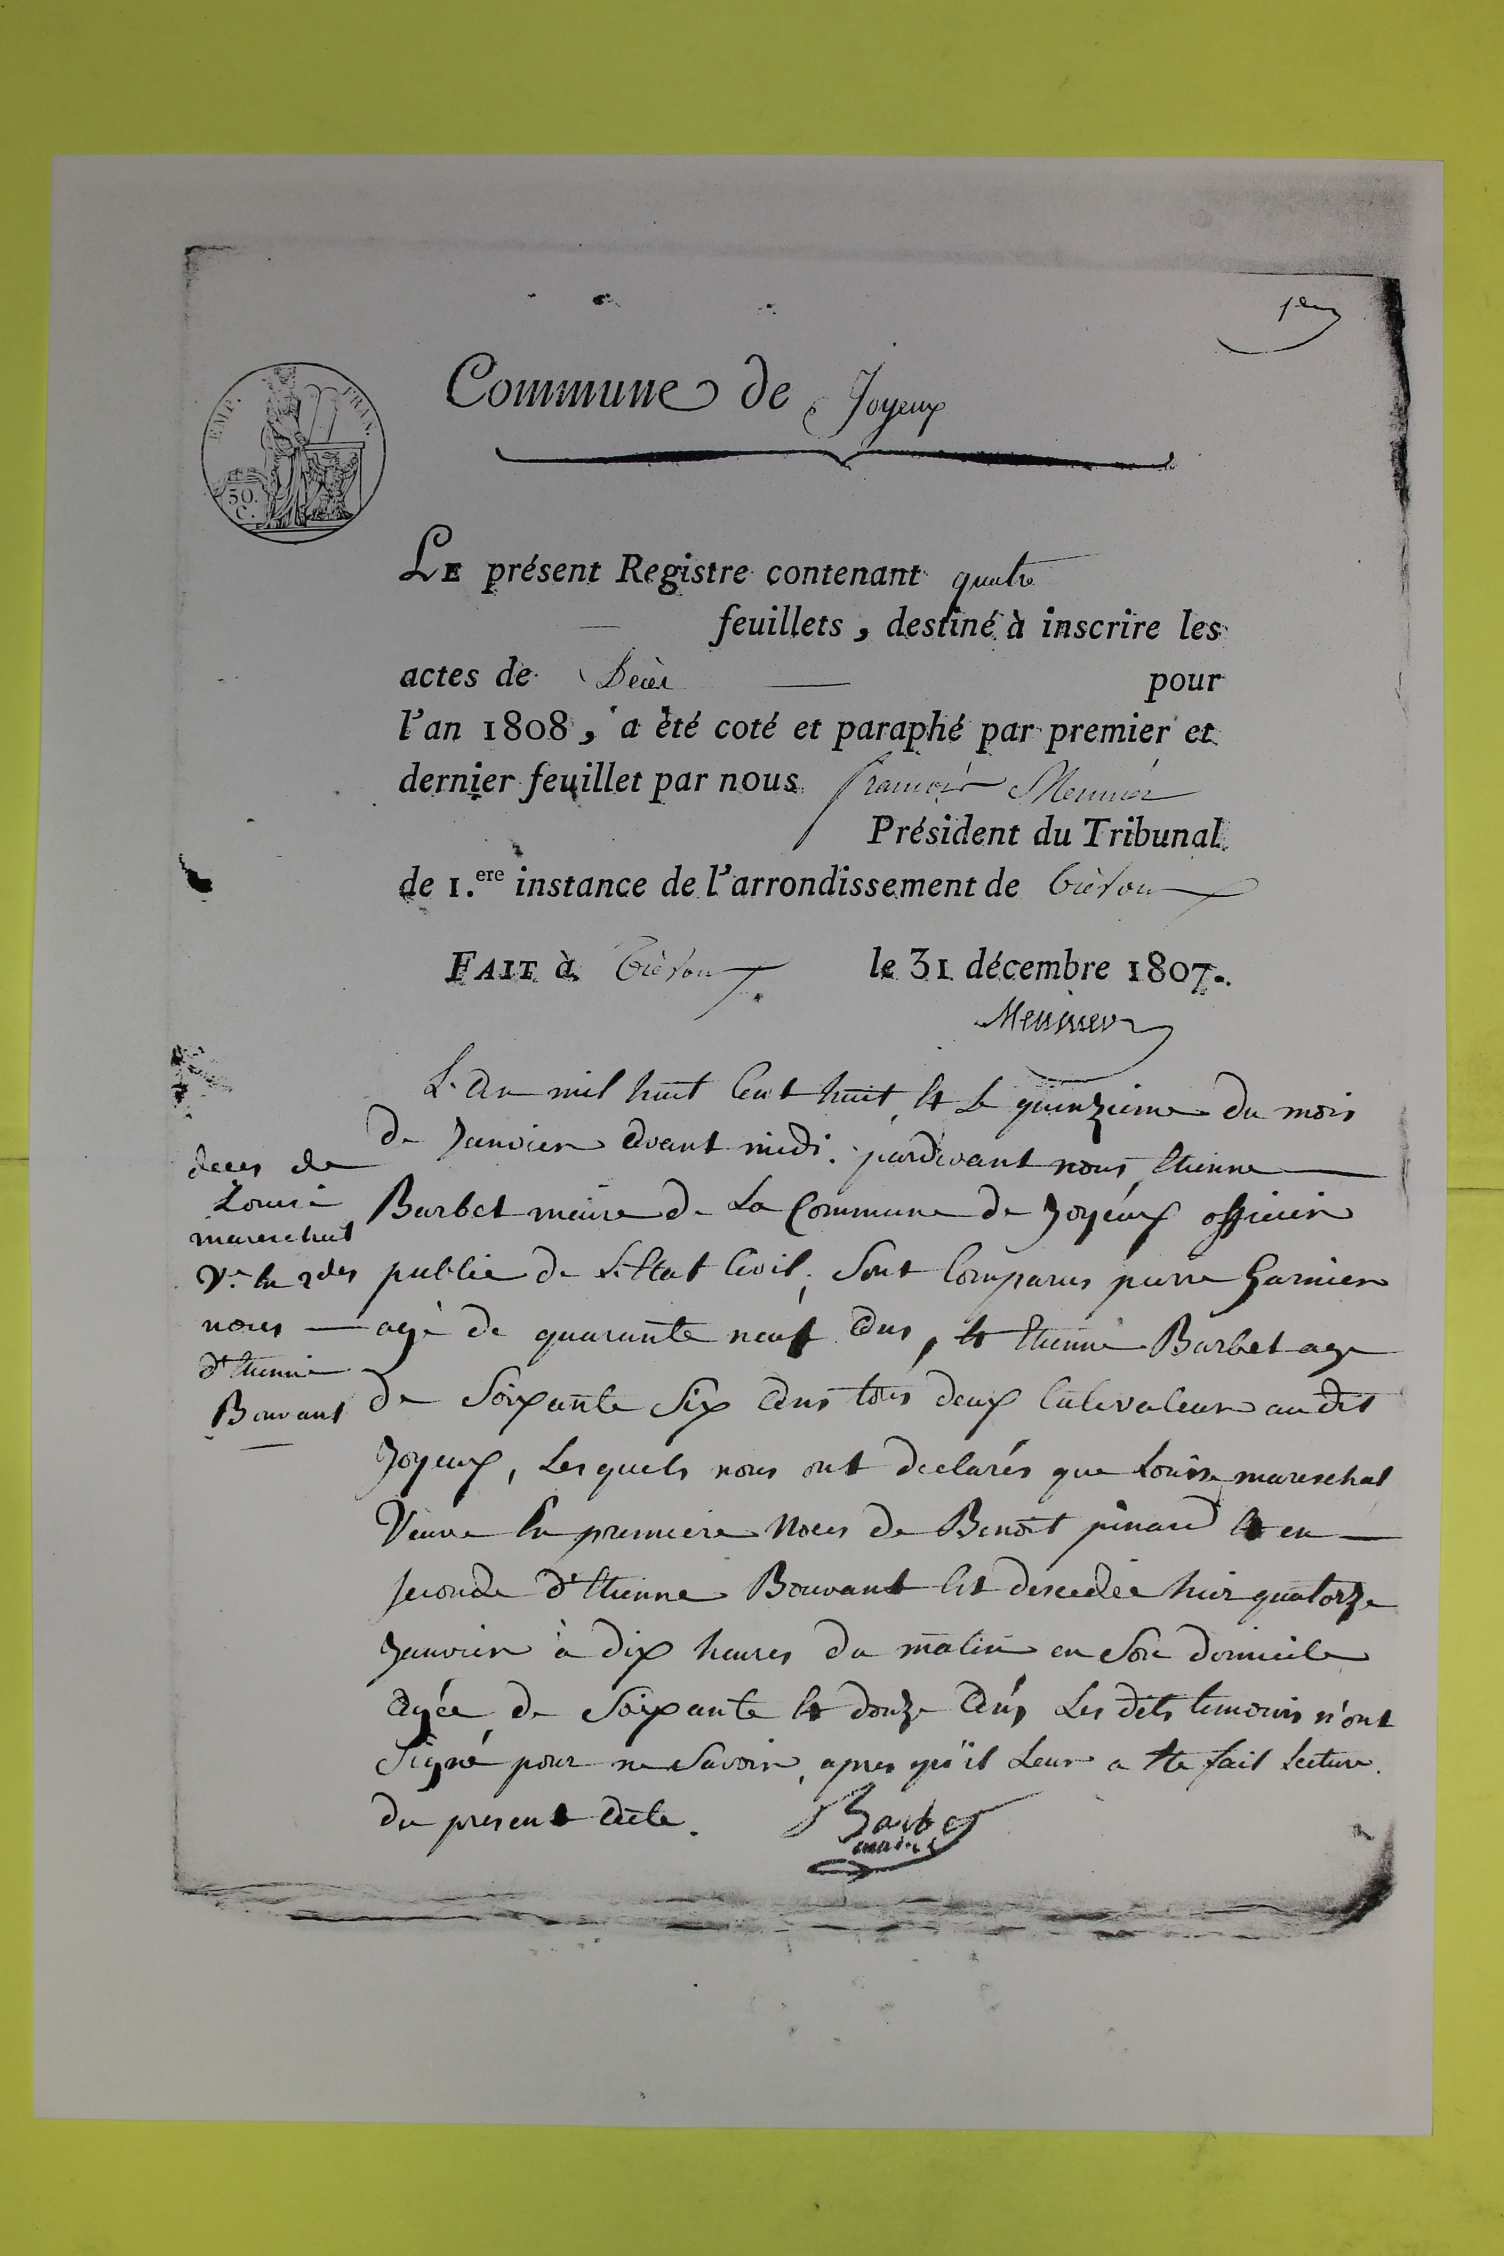 1er
EMP. FRAN.
50.
C.
Commune de Joyeux
LE présent Registre contenant quatre
feuillets, destiné à inscrire les
actes de Décès pour
l'an 1808, a été coté et paraphé par premier et
dernier feuillet par nous françois
Président du Tribunal
de 1.ere instance de l'arrondissement de Trévoux
FAIT à Trévoux le 31 décembre 1807.
L'an mil huit Cent huit, et le quinzieme du mois
de Janvier avant midi. pardevant nous Etienne
Barbet maire de La Commune de Joyeux officier
public de L'Etat Civil, Sont Comparus pierre Garnier
agé de quarante neuf ans, et Etienne Barbet age
de Soixante Six ans tous deux Cultivateur au dit
Joyeux, Lesquels nous ont declarés que Louise mareschal
Veuve En premiere Noces de Benoit pinard et en
seconde d'Etienne Bouvant Est descedée hier quatorze
Janvier à dix heures du matin en Son domicile
agée de Soixante et douze ans Les dits temoins n'ont
Signé pour ne Savoir, apres qu'il Leur a ete fait Lecture
du present acte.
Barbet
maire
deces de
Louise
mareschal
Ve. En 2des
noces
d'Etienne
Bouvant